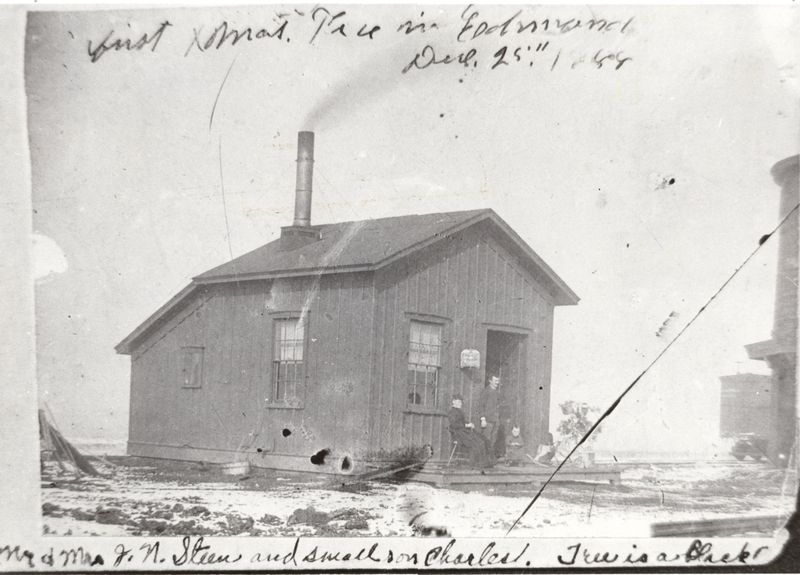 first Xmas. Tree in Edmond
Dec. 25" 18
Mr & Mrs J. N. Steen and small son Charles. Tree is a Black